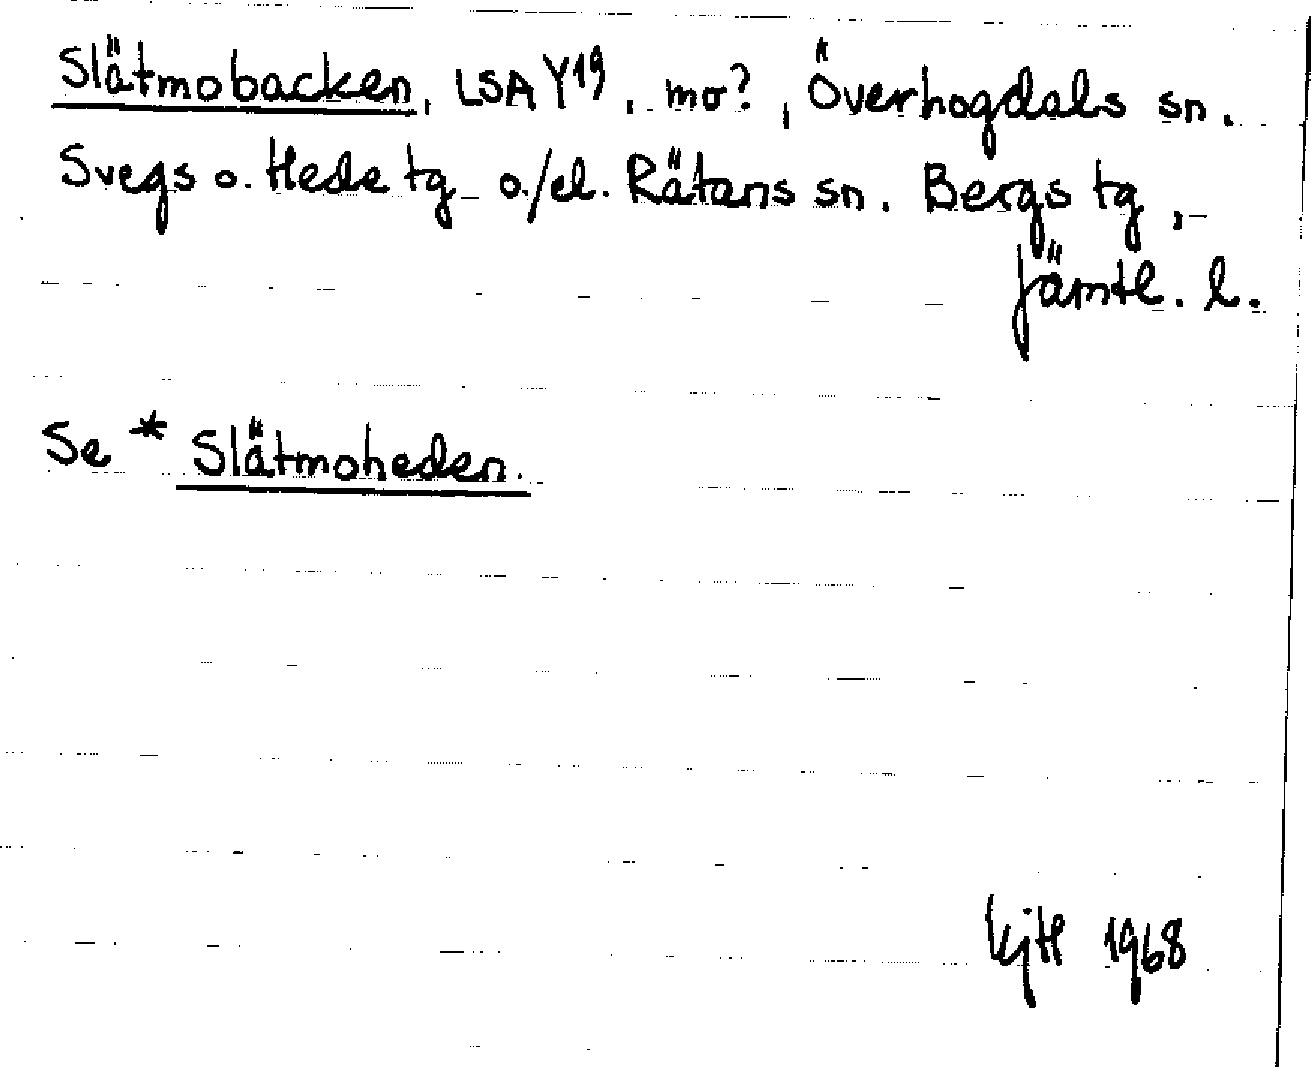 Slätmobacken, LSA Y19, mo?, Överhogdals sn.
Svegs o. Hede tg o./el. Rätans sn. Bergs tg,
Jämtl. l.
Se * Slätmoheden.
KjH 1968